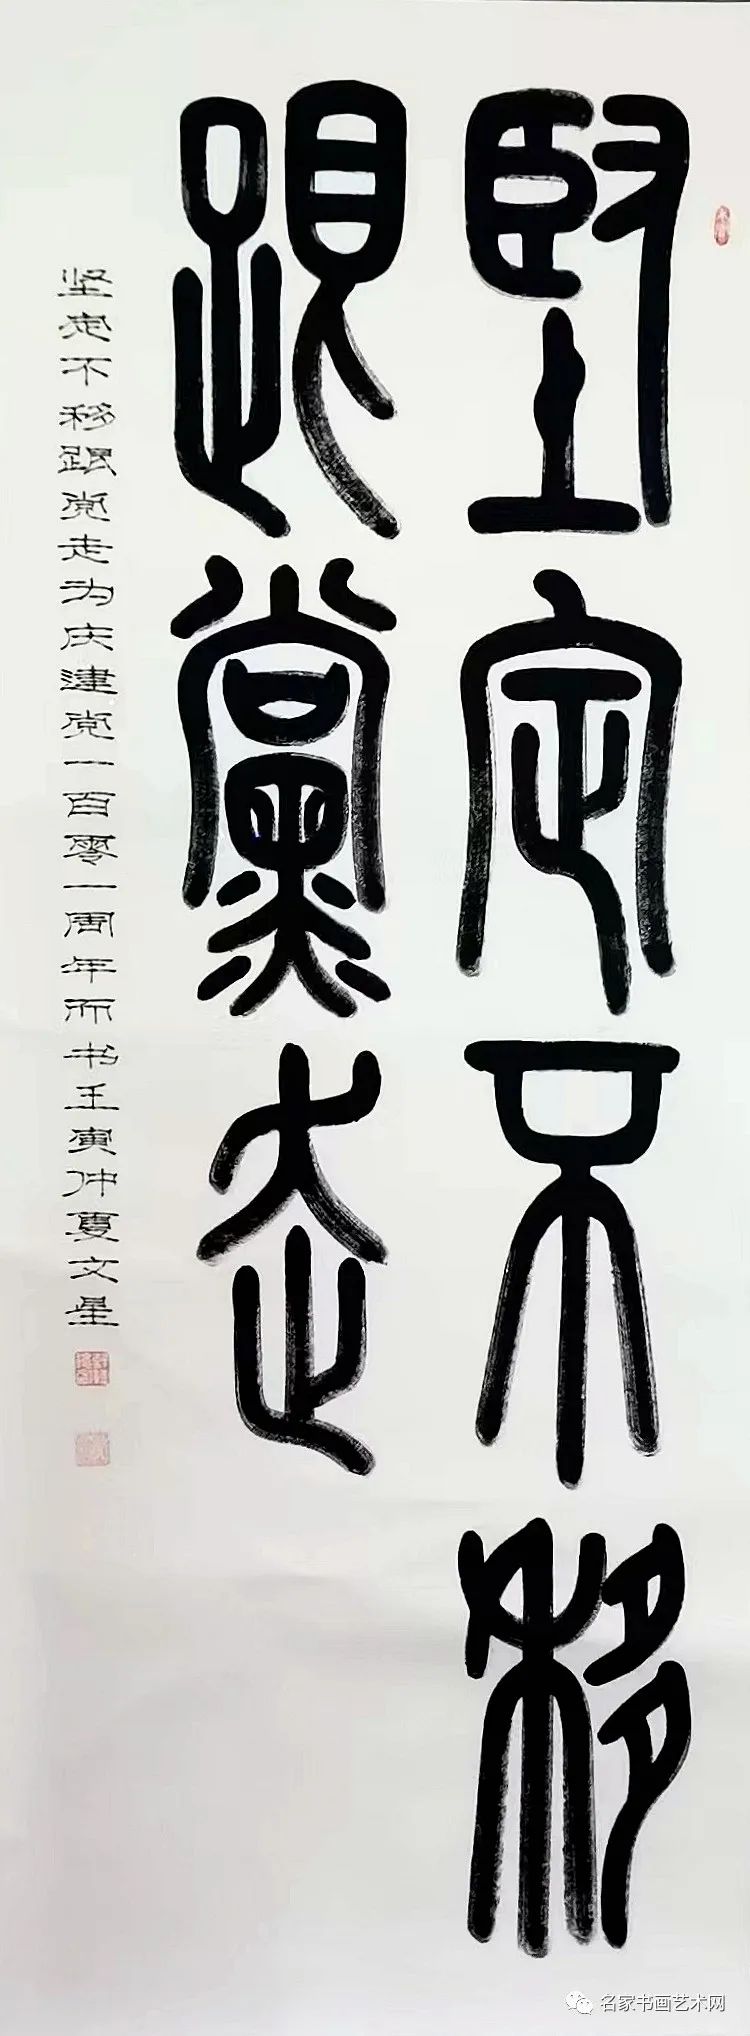 堅定不移
跟黨走
坚定不移跟党走为庆建党一百零一周年而书壬寅仲夏文星
名家书画艺术网